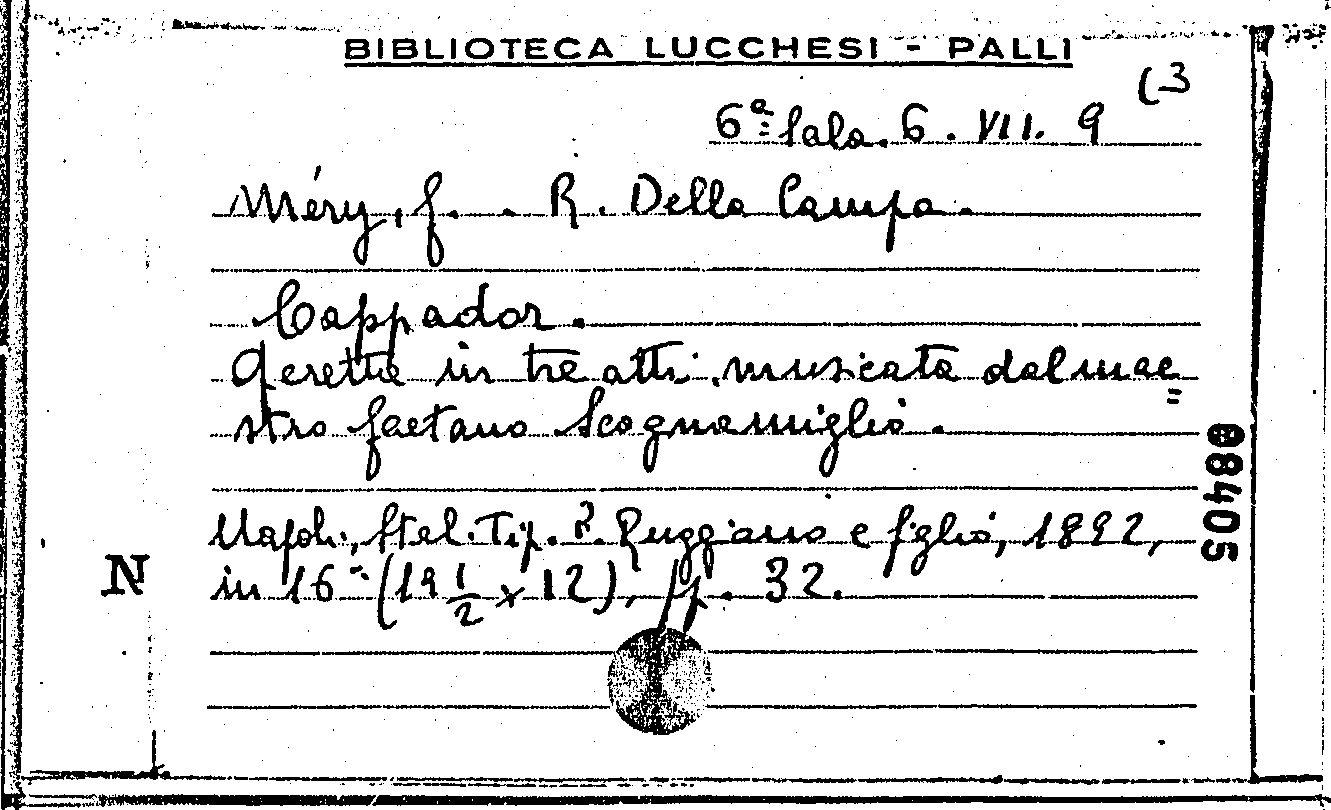 BIBLIOTECA LUCCHESI - PALLI
(3
6ª Sala. 6. VII. 9
Méry, G. - R. Della Campa.
Cappador.
Operette in tre atti, musicata dal mae=
stro Gaetano Scognamiglio.
Napoli, Stal. Tip. R. Ruggiano e figlio, 1892,
in 16° (19 1/2 x 12), pp. 32.
N
08405